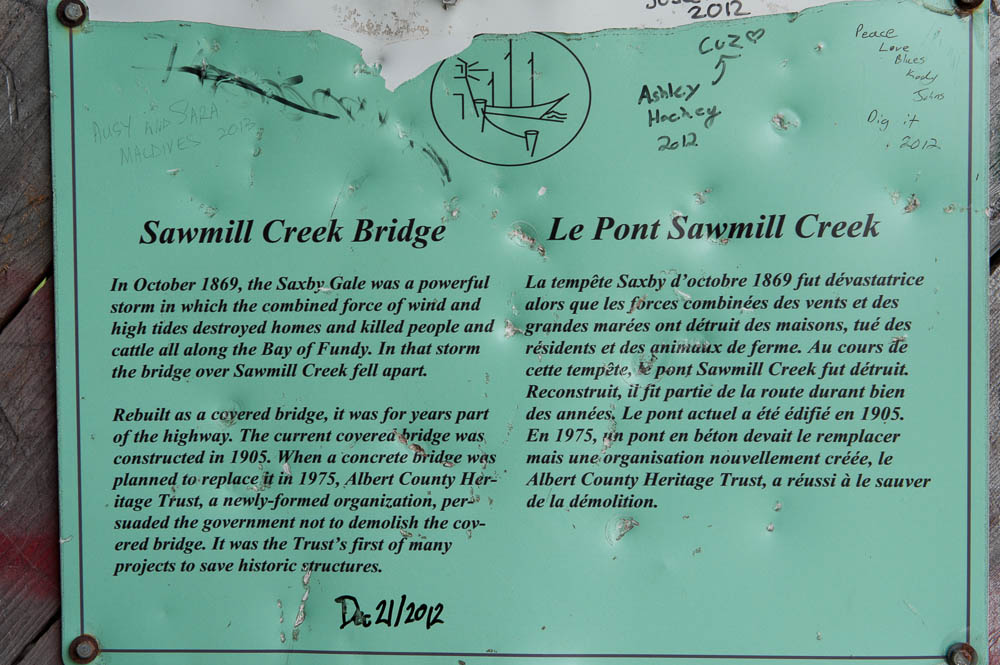 2012
CUZ♡
Ashley
Hachey
2012
Peace
Love
Blues
Kody
Johns
Dig it
2012
AND SARA
MALDIVES 2013
Sawmill Creek Bridge
In October 1869, the Saxby Gale was a powerful
storm in which the combined force of wind and
high tides destroyed homes and killed people and
cattle all along the Bay of Fundy. In that storm
the bridge over Sawmill Creek fell apart.
Rebuilt as a covered bridge, it was for years part
of the highway. The current covered bridge was
constructed in 1905. When a concrete bridge was
planned to replace it in 1975, Albert County Her-
itage Trust, a newly-formed organization, per-
suaded the government not to demolish the cov-
ered bridge. It was the Trust's first of many
projects to save historic structures.
Le Pont Sawmill Creek
La tempête Saxby d'octobre 1869 fut dévastatrice
alors que les forces combinées des vents et des
grandes marées ont détruit des maisons, tué des
résidents et des animaux de ferme. Au cours de
cette tempête, le pont Sawmill Creek fut détruit.
Reconstruit, il fit partie de la route durant bien
des années. Le pont actuel a été édifié en 1905.
En 1975, un pont en béton devait le remplacer
mais une organisation nouvellement créée, le
Albert County Heritage Trust, a réussi à le sauver
de la démolition.
Dec 21/2012